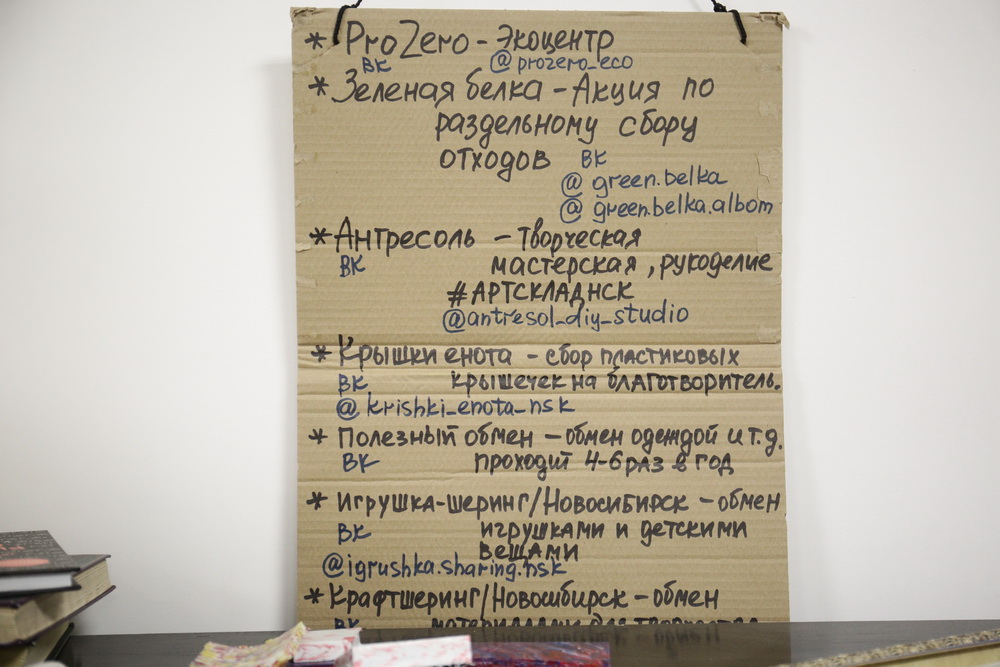 * ProZero - Экоцентр
ВК @prozero_eco
* Зеленая белка - Акция по
раздельному сбору
отходов ВК
@ green.belka
@ green.belka.albom
* Антресоль - Творческая
ВК мастерская, рукоделие
#АРТСКЛАДНСК
@antresol_diy_studio
* Крышки енота - сбор пластиковых
ВК крышечек на благотворитель.
@ krishki_enota_nsk
* Полезный обмен - обмен одеждой и т.д.
ВК проходит 4-6 раз в год
* Игрушка-шеринг/Новосибирск - обмен
ВК игрушками и детскими
вещами
@igrushka.sharing.nsk
* Крафтшеринг/Новосибирск - обмен
ВК материалами для творчества